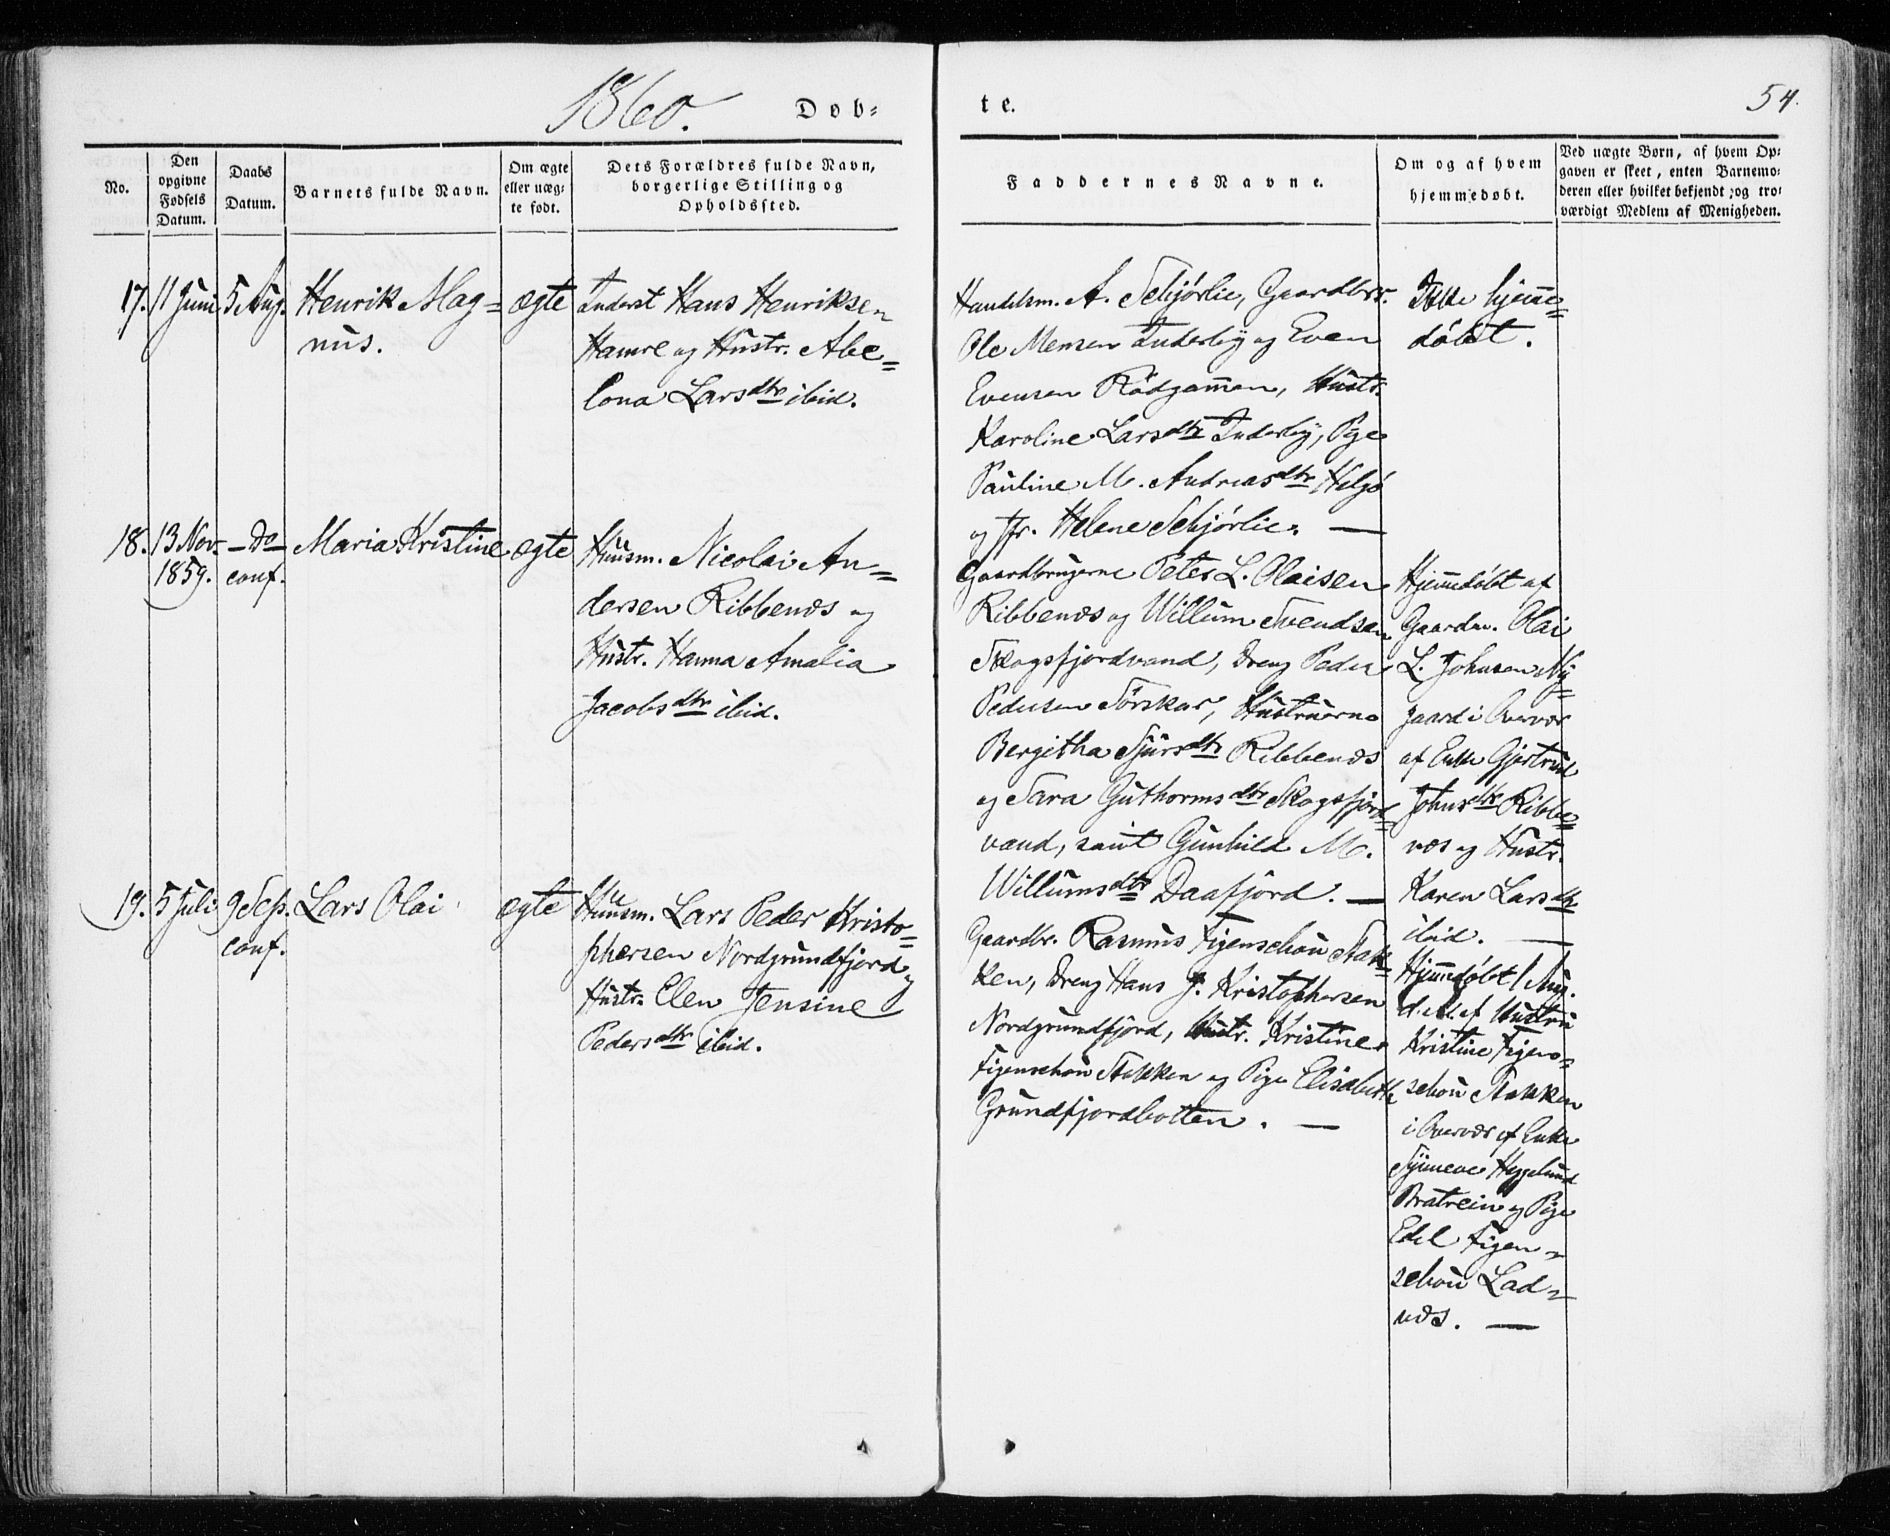 1860.
Døb-
te.
54.
No.
Den
opgivne
Fødsels
Datum.
Daabs
Datum.
Barnets fulde Navn.
Om ægte
eller uæg-
te født.
Dets Forældres fulde Navn,
borgerlige Stilling og
Opholdssted.
Faddernes Navne.
Om og af hvem
hjemmedøbt.
Ved uægte Børn, af hvem Op-
gaven er skeet, enten Barnemo-
deren eller hvilket bekjendt og tro-
værdigt Medlem af Menigheden.
17. 11 Juni 5 Aug. Henrik Mag=
nus.
ægte
Inderst Hans Henriksen
Hamre og Hustr. Abe=
lona Larsdtr ibid.
Handelsm. A. Schjørlie, Gaardbrr.
Ole Mensen Inderby og Even
Evensen Rödgamen, Hustr.
Karoline Larsdtr Inderby, Pige
Pauline M. Andreasdtr Helgö
og Jfr. Helene Schjørlie. —
Ikke hjeme=
døbt.
18. 13 Nov. 1859. — Do — conf. Maria Kristine
ægte
Huusm. Nicolai An=
dersen Ribbenæs og
Hustr. Hanna Amalia
Jacobsdtr ibid.
Gaardbrugerne Peter L. Olaisen
Ribbenæs og Willum Svendsen
Skogsfjordvand, Dreng Peder
Pedersen Sörskar, Hustruerne
Bergitha Sjursdtr Ribbenæs
og Sara Guthormsdtr Skogsfjord=
vand, samt Gunhild M.
Willumsdtr Daafjord. —
Hjemedøbt af
Gaardm. Olai
L. Johnsen Ny=
gaard i Overvær
af Enke Gjertrud
Johnsdtr Ribbe=
næs og Hustr.
Karen Larsdtr
ibid. —
19. 5 Juli 9 Sept. conf. Lars Olai
ægte
Huusm. Lars Peder Kristo=
phersen Nordgrundfjord og
Hustr. Elen Jensine
Pedersdtr ibid.
Gaardbr. Rasmus Figenschou Stak=
ken, Dreng Hans J. Kristophersen
Nordgrundfjord, Hustr. Kristine
Figenschou Stakken og Pige Elisabeth
Grundfjordbotten. —
Hjemedøbt 1 Aug.
d. A. af Hustru
Kristine Figen=
schou Stakken
i Overvær af Enke
Heggelund
Bratrein og Pige
Edel Figen=
schou Lad=
næs. —